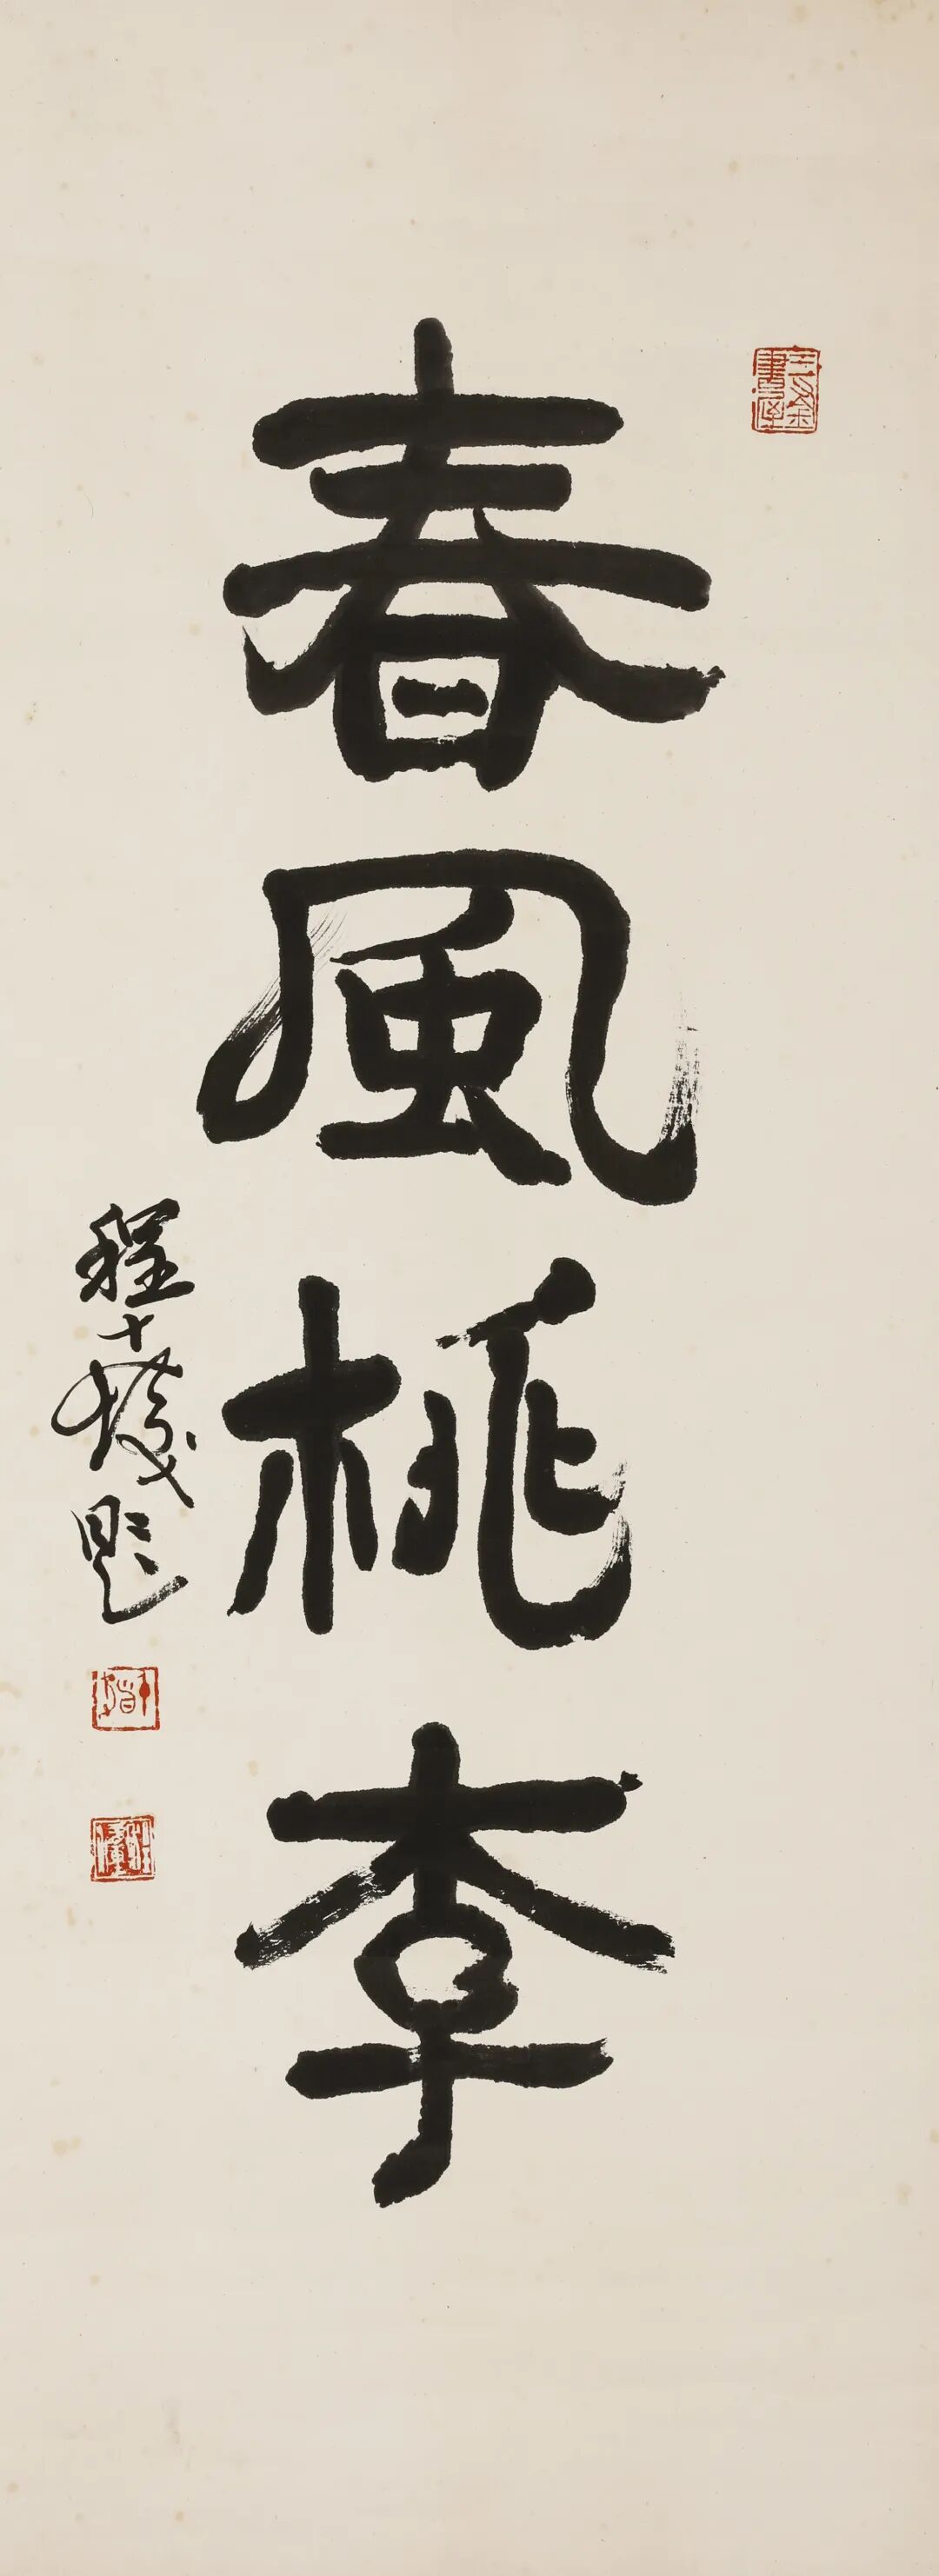 春風桃李
程十髮題